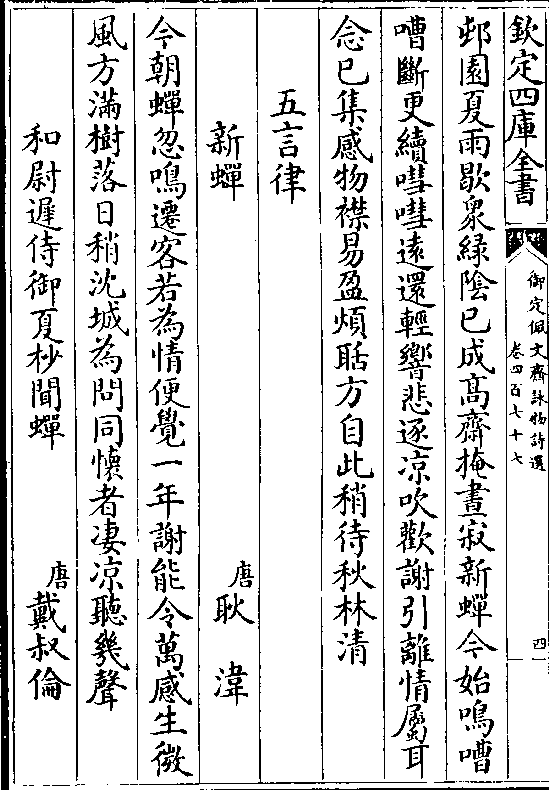 欽定四庫全書
御定佩文齋詠物詩選
卷四百七十七
四
邨園夏雨歇衆緑陰已成高齋掩晝寂新蟬今始鳴嘈
嘈斷更續嘒嘒遠還輕響悲逐凉吹歡謝引離情屬耳
念已集感物襟易盈煩聒方自此稍待秋林清
五言律
新蟬
唐
耿湋
今朝蟬忽鳴遷客若為情便覺一年謝能令萬感生微
風方滿樹落日稍沈城為問同懷者凄凉聽幾聲
和尉遲侍御夏杪聞蟬
唐
戴叔倫